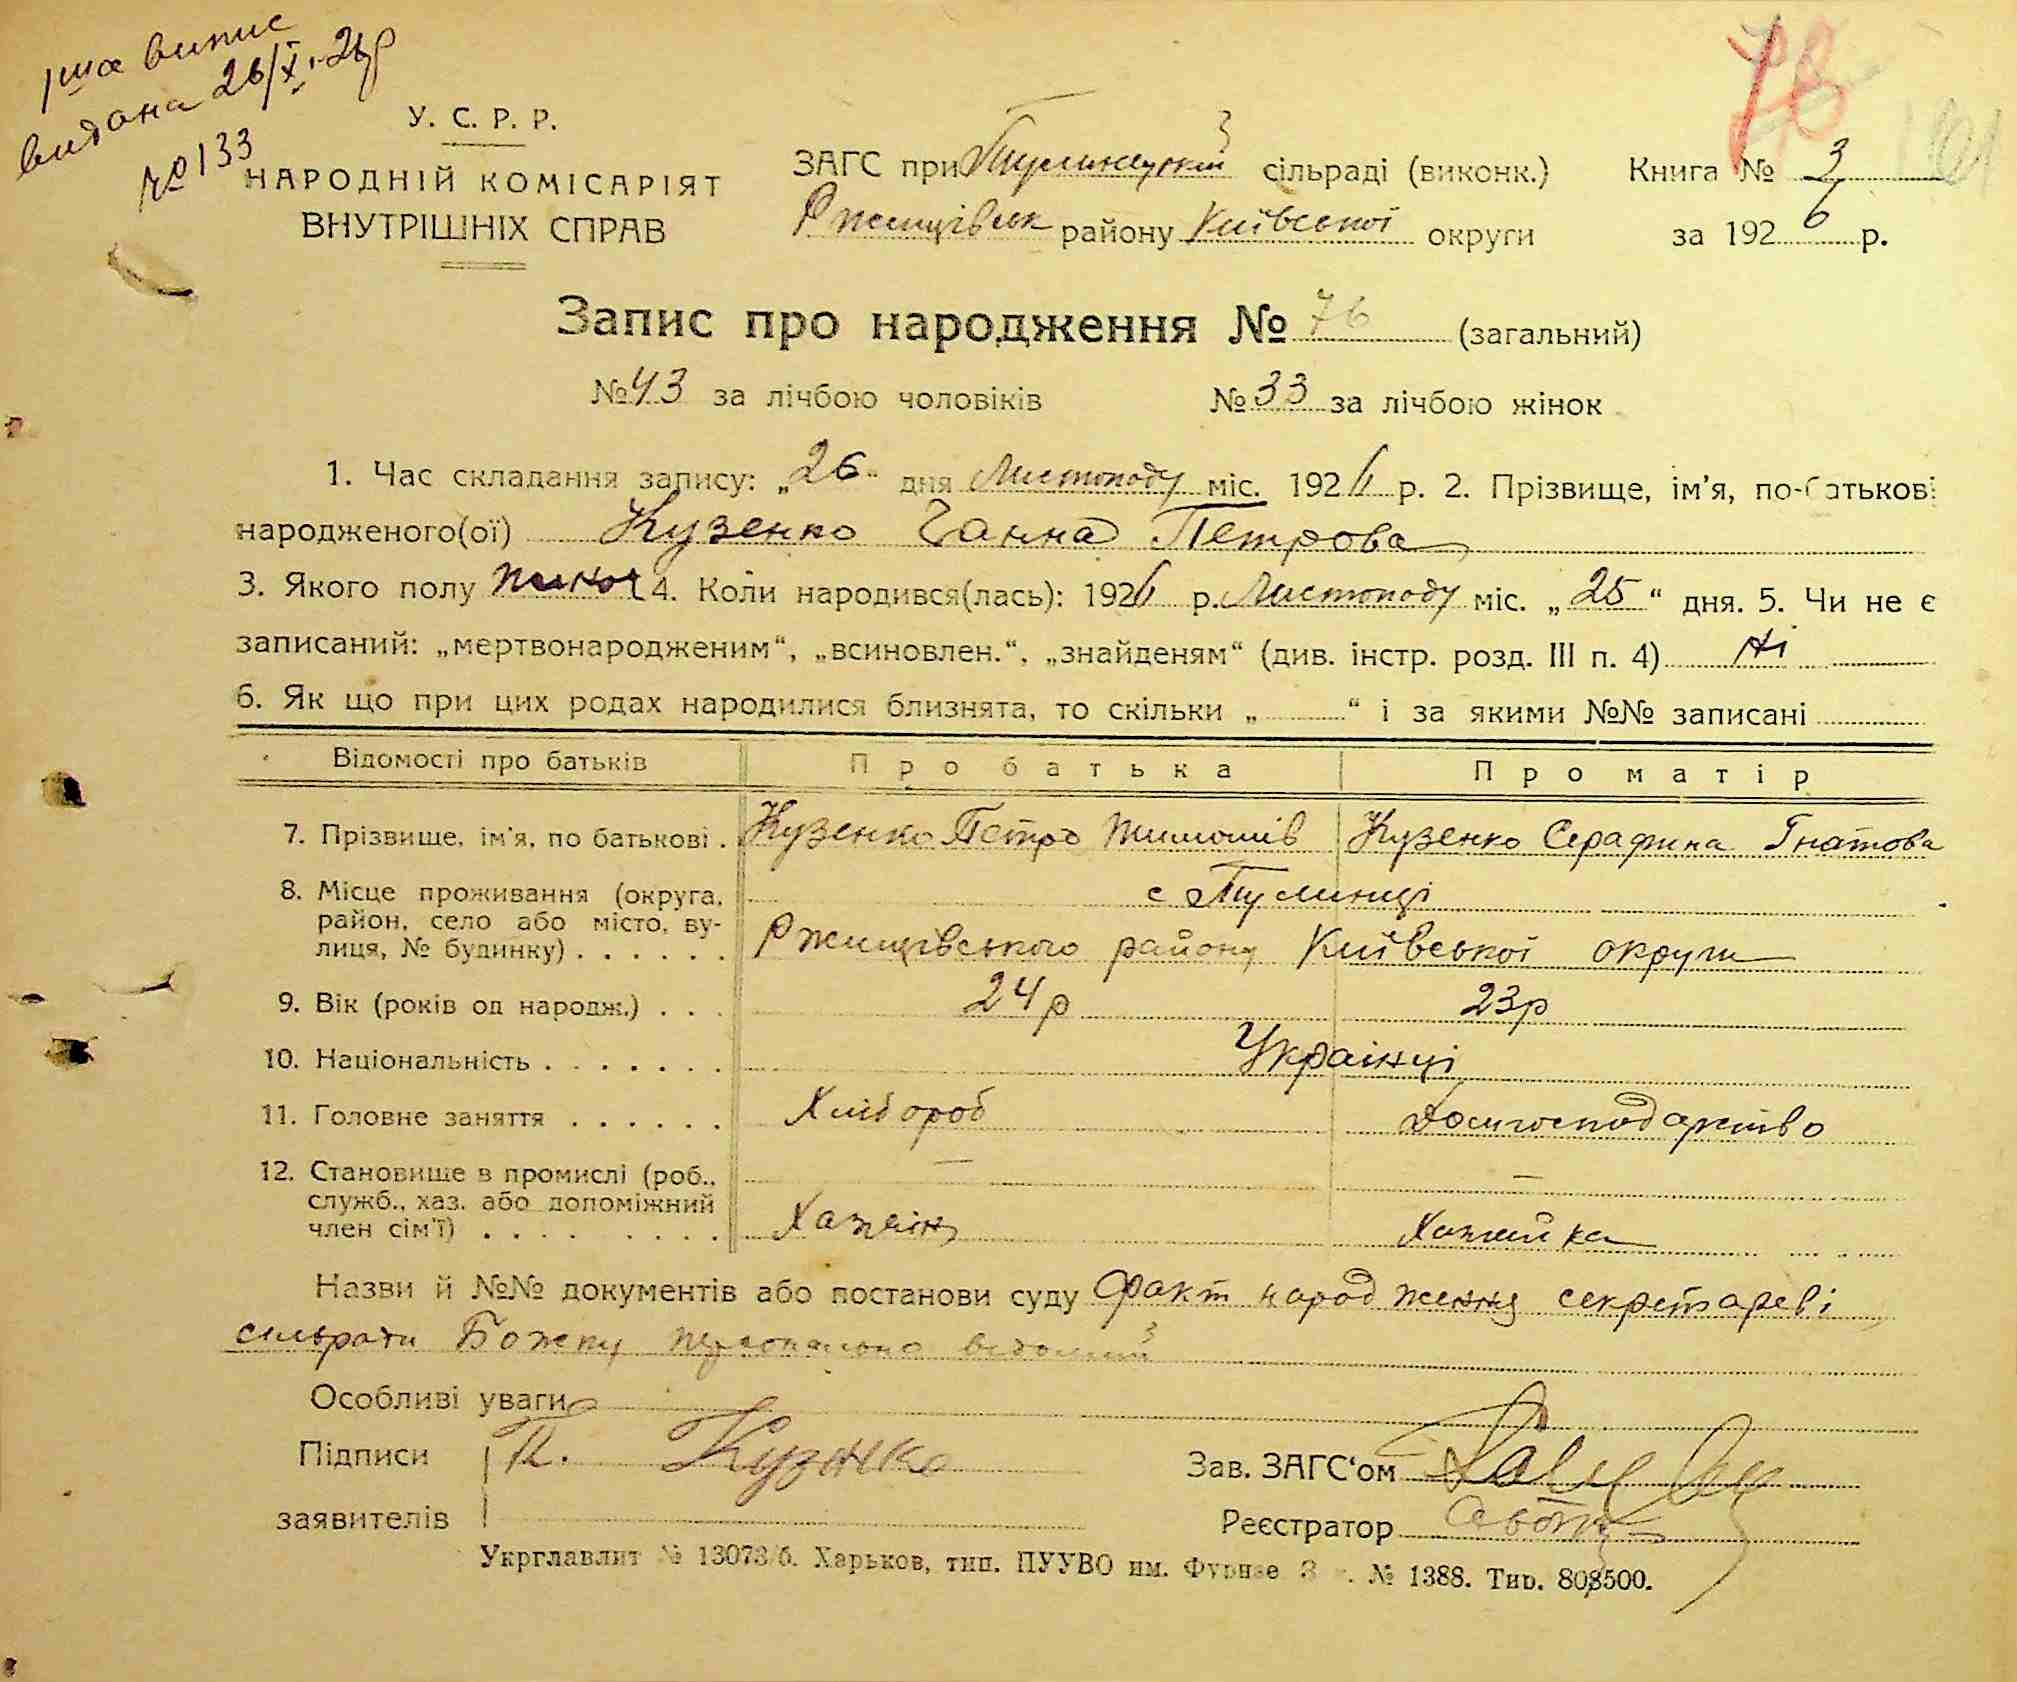 1ша випис
видана 26/X 26р
№ 133
76
У. С. Р. Р.
НАРОДНІЙ КОМІСАРІЯТ
ВНУТРІШНІХ СПРАВ
ЗАГС при Тулинецькій сільраді (виконк.)
Ржищівськ району Київської округи
Книга № 3
за 1926 р.
Запис про народження № 76 (загальний)
№ 43 за лічбою чоловіків № 33 за лічбою жінок
1. Час складання запису: „26“ дня Листопаду міс. 1926 р. 2. Прізвище, ім’я, по-батькові
народженого(ої) Кузенко Ганна Петрова
3. Якого полу жіноч 4. Коли народився(лась): 1926 р. Листопаду міс. „25“ дня. 5. Чи не є
записаний: „мертвонародженим“, „всиновлен.“, „знайденям“ (див. інстр. розд. III п. 4) Ні
6. Як що при цих родах народилися близнята, то скільки „ “ і за якими №№ записані
Відомості про батьків Про батька Про матір
7. Прізвище, ім’я, по батькові . Кузенко Петро Тимошів Кузенко Серафина Гнатова
8. Місце проживання (округа, с Тулинці
район, село або місто, ву-
лиця, № будинку) . . . . . . Ржищівського району Київської округи
9. Вік (років од народж.) . . . 24 р 23 р
10. Національність . . . . . . . Українці
11. Головне заняття . . . . . . Хлібороб Домгосподарство
12. Становище в промислі (роб., — —
служб., хаз. або допоміжний
член сім’ї) . . . . . . . . Хазяїн Хазяйка
Назви й №№ документів або постанови суду Факт народження секретареві
сільради Божку персонально відомий
Особливі уваги
Підписи П. Кузенко Зав. ЗАГС‘ом
заявителів Реєстратор
Укрглавлит № 13073/б. Харьков, тип. ПУУВО им. Фрунзе З . № 1388. Тир. 808500.